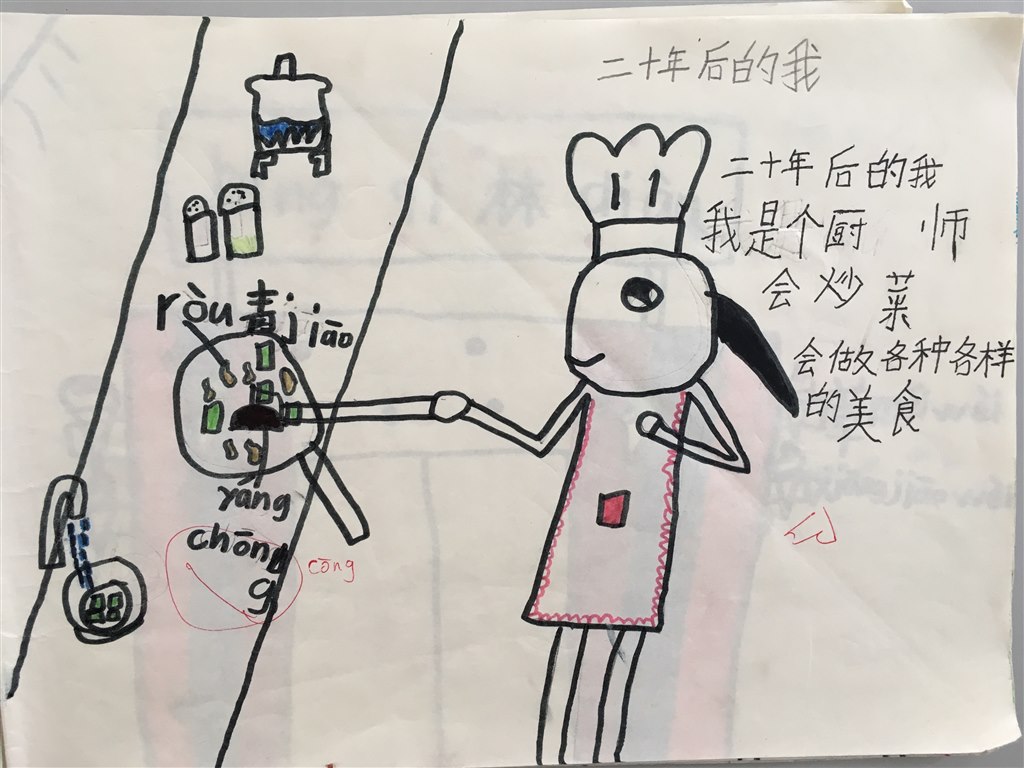 二十年后的我
二十年后的我
我是个厨 师
会炒菜
会做各种各样
的美食
ròu 青jiāo
yáng
chōng
g
cōng